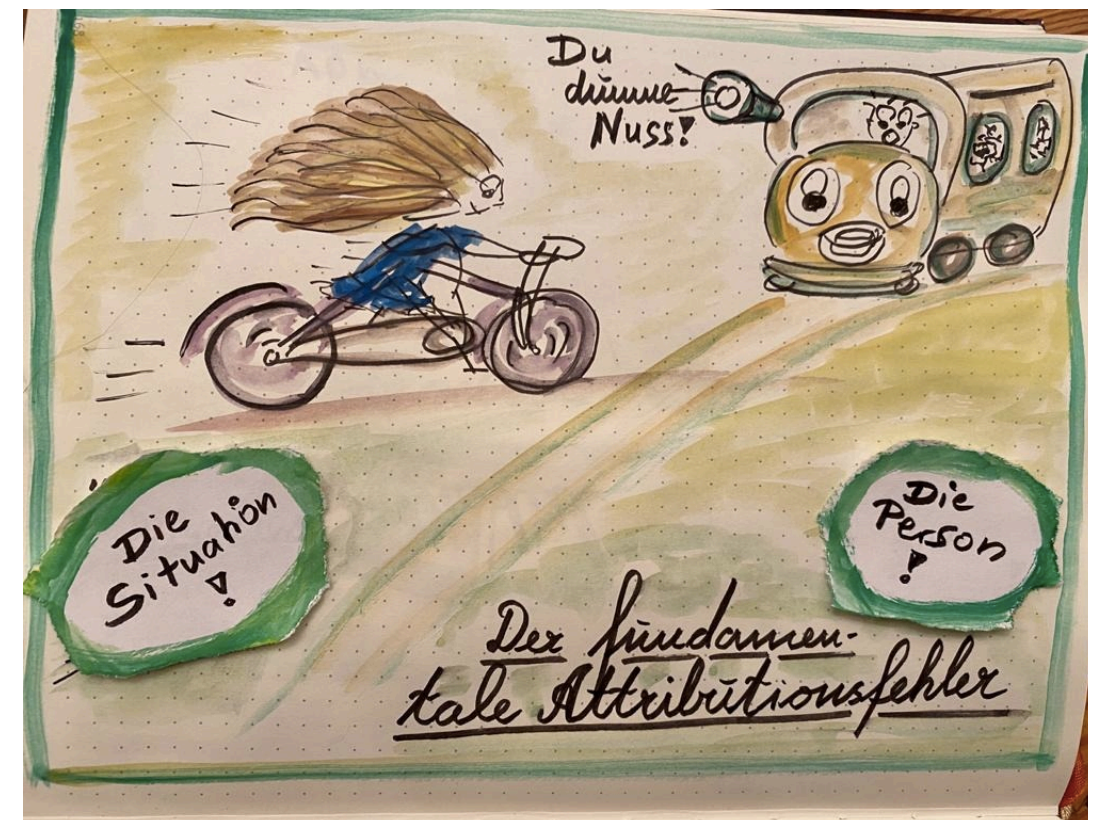 Du
dumme
Nuss!
Die
Situation
!
Die
Person
!
Der fundamen-
tale Attributionsfehler